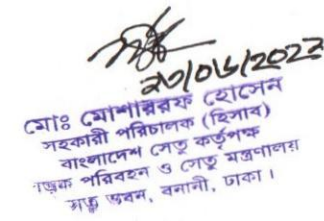 ২৩/০৬/২০২২
মোঃ মোশাররফ হোসেন
সহকারী পরিচালক (হিসাব)
বাংলাদেশ সেতু কর্তৃপক্ষ
সড়ক পরিবহন ও সেতু মন্ত্রণালয়
সেতু ভবন, বনানী, ঢাকা।